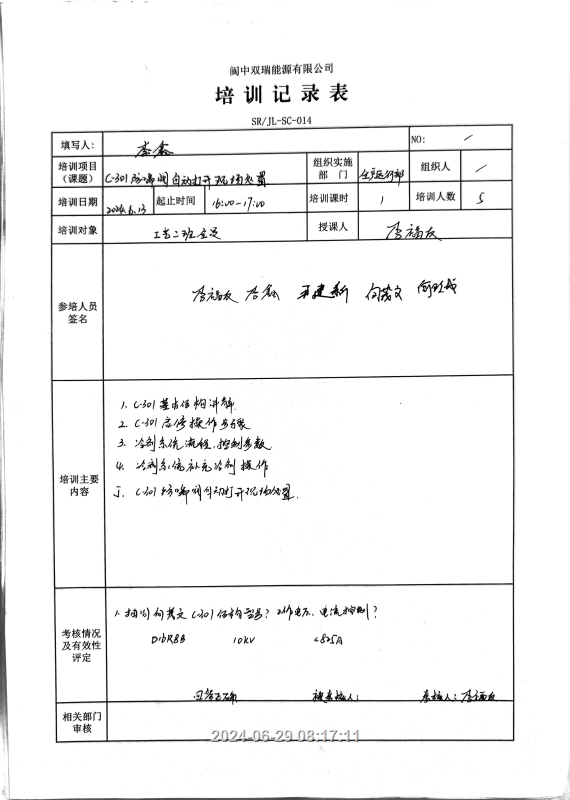 阆中双瑞能源有限公司
培训记录表
SR/JL-SC-014
填写人： 李鑫 NO: /
培训项目（课题） C-301防喘阀自动打开现场处置 组织实施部门 生产运行部 组织人 /
培训日期 2024.6.13 起止时间 16:00-17:00 培训课时 1 培训人数 5
培训对象 工艺二班全员 授课人 李福友
参培人员签名 李福友 李鑫 王建新 向茂文
培训主要内容
1. C-301基本结构讲解.
2. C-301启停操作步骤
3. 冷剂系统流程,控制参数
4. 冷剂系统补充冷剂操作
5. C-301防喘阀自动打开现场处置.
考核情况及有效性评定
1. 抽问向茂文C-301结构型号? 工作电压、电流控制?
D16R8B 10KV <825A
回答正确 被考核人: 考核人:李福友
相关部门审核
2024-06-29 08:17:11